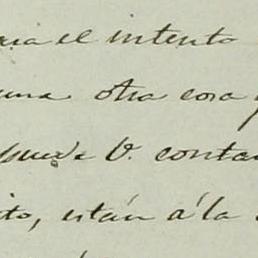 para el intento
una otra cosa q
puede V. conta
ito, están á la